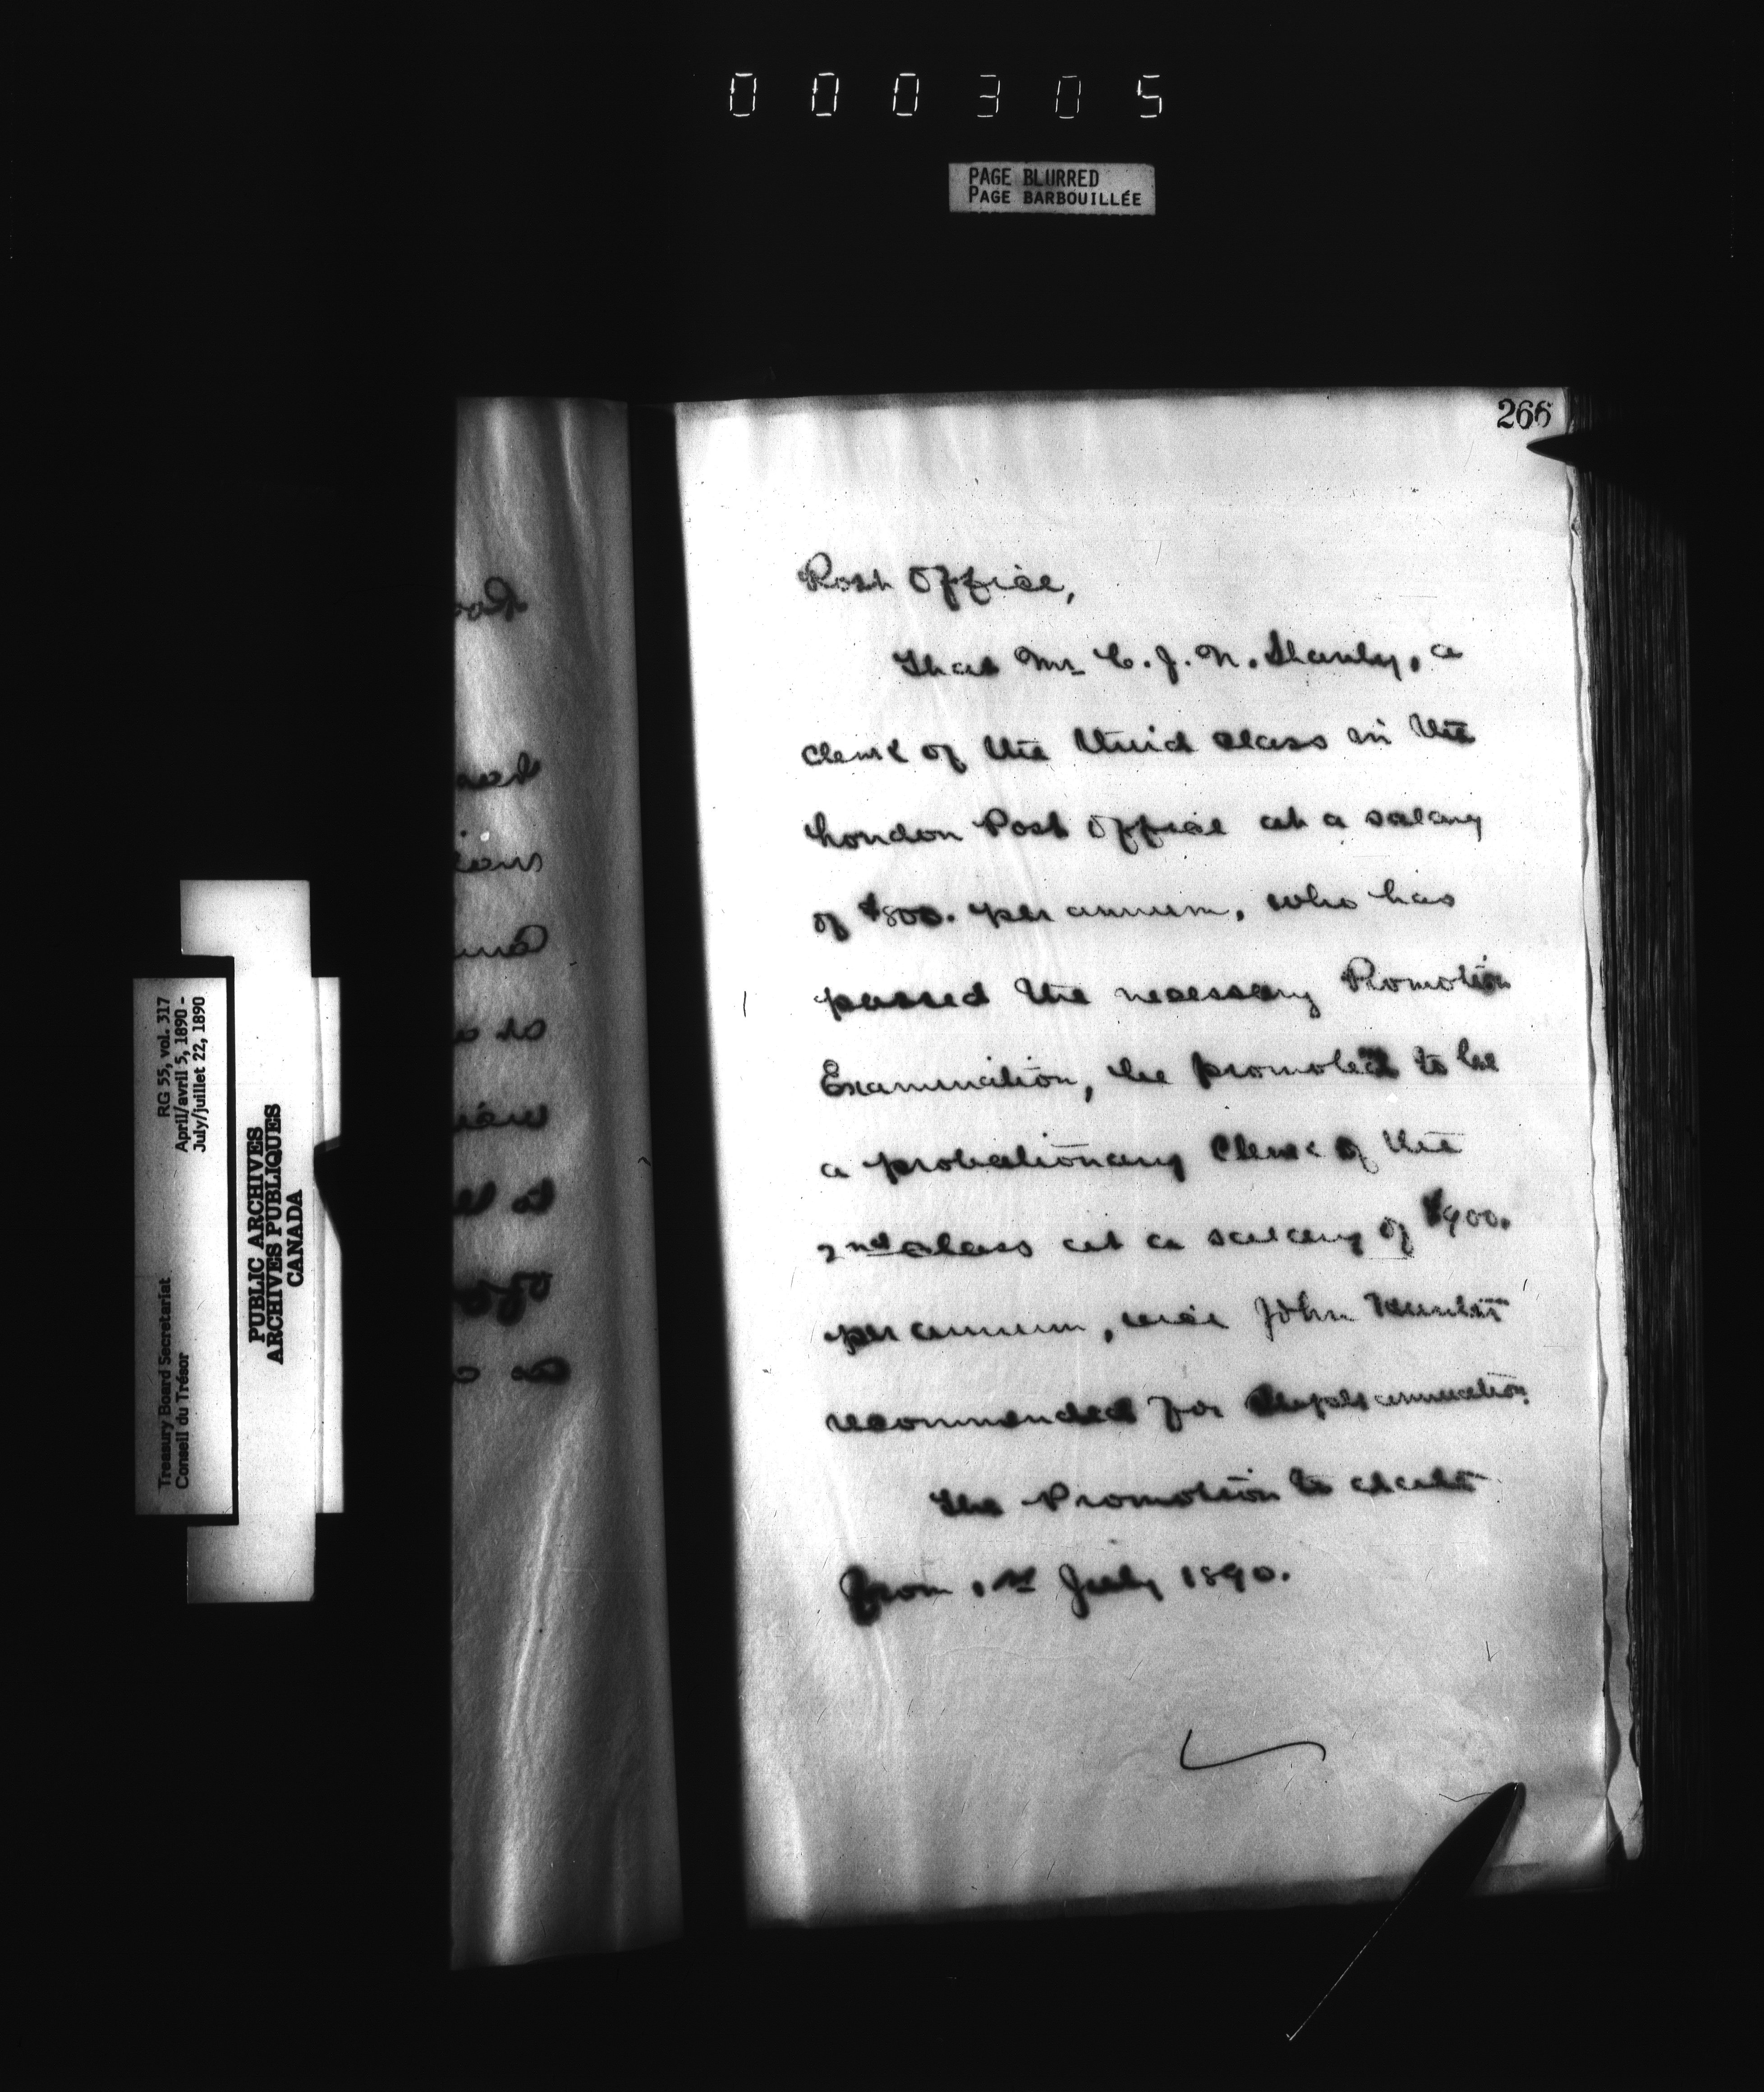 000305
PAGE BLURRED
PAGE BARBOUILLÉE
266
Post Office,
That Mr C. J. N. Shanly, a
clerk of the third class in the
London Post Office at a salary
of $800. per annum, who has
passed the necessary Promotion
Examination, be promoted to be
a probationary Clerk of the
2nd class at a salary of $900.
per annum, vice John
recommended for Superannuation.
The Promotion to
from 1st July 1890.
RG 55, vol. 317
April/avril 5, 1890 -
July/juillet 22, 1890
Treasury Board Secretariat
Conseil du Trésor
PUBLIC ARCHIVES
ARCHIVES PUBLIQUES
CANADA